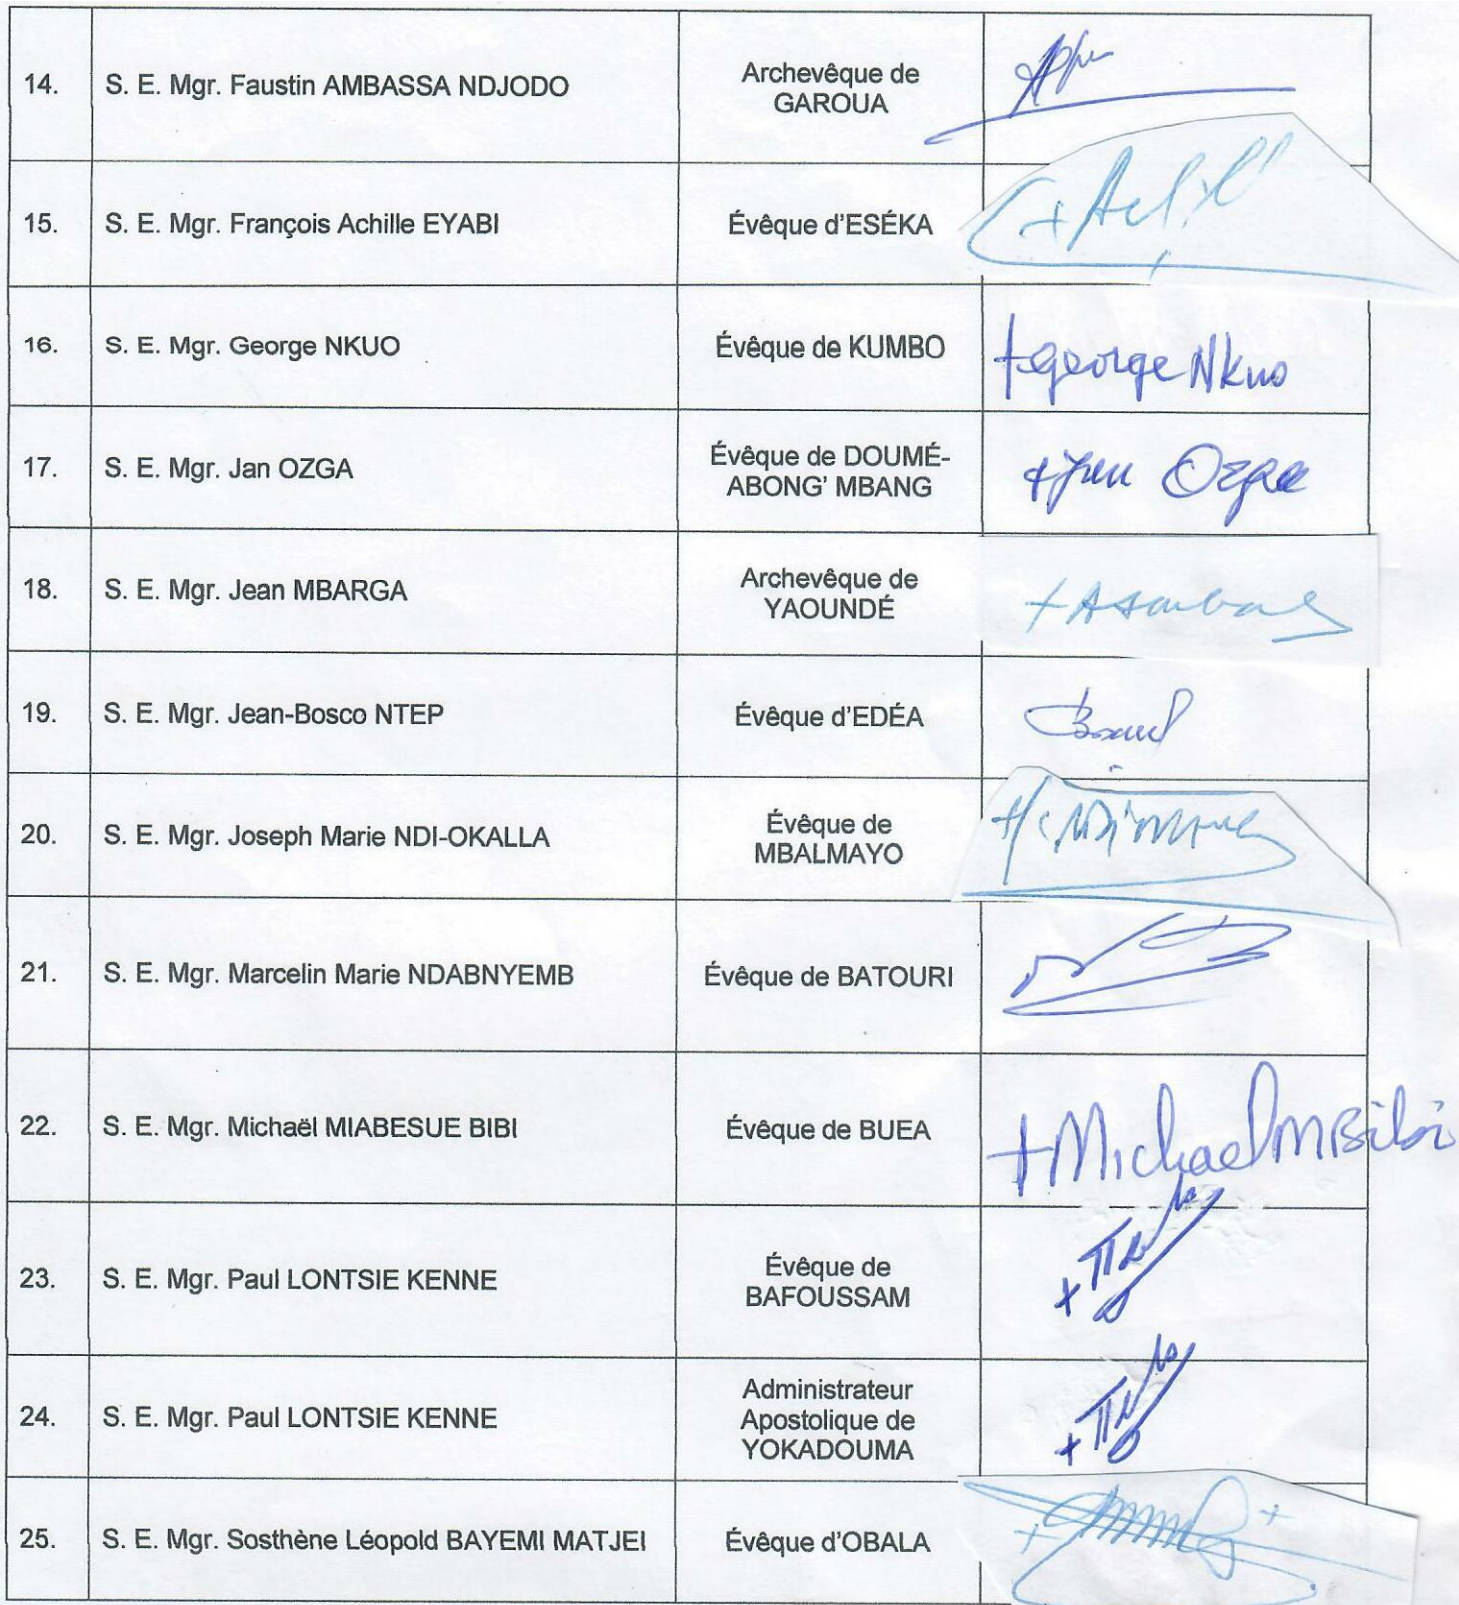 14.
S. E. Mgr. Faustin AMBASSA NDJODO
Archevêque de
GAROUA
15.
S. E. Mgr. François Achille EYABI
Évêque d'ESÉKA
+ Achill
16.
S. E. Mgr. George NKUO
Évêque de KUMBO
+george Nkuo
17.
S. E. Mgr. Jan OZGA
Évêque de DOUMÉ-
ABONG' MBANG
+Jan Ozga
18.
S. E. Mgr. Jean MBARGA
Archevêque de
YAOUNDÉ
19.
S. E. Mgr. Jean-Bosco NTEP
Évêque d'EDÉA
20.
S. E. Mgr. Joseph Marie NDI-OKALLA
Évêque de
MBALMAYO
21.
S. E. Mgr. Marcelin Marie NDABNYEMB
Évêque de BATOURI
22.
S. E. Mgr. Michaël MIABESUE BIBI
Évêque de BUEA
+Michael M Bibi
23.
S. E. Mgr. Paul LONTSIE KENNE
Évêque de
BAFOUSSAM
24.
S. E. Mgr. Paul LONTSIE KENNE
Administrateur
Apostolique de
YOKADOUMA
25.
S. E. Mgr. Sosthène Léopold BAYEMI MATJEI
Évêque d'OBALA